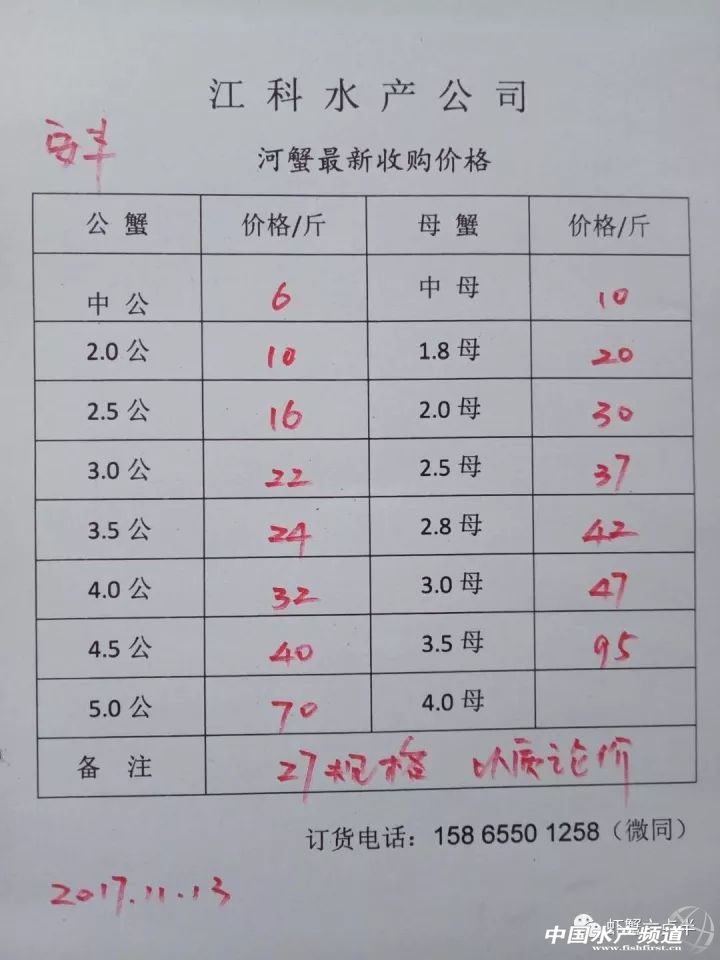 江科水产公司
河蟹最新收购价格
公蟹 价格/斤 母蟹 价格/斤
中公 6 中母 10
2.0公 10 1.8母 20
2.5公 16 2.0母 30
3.0公 22 2.5母 37
3.5公 24 2.8母 42
4.0公 32 3.0母 47
4.5公 40 3.5母 95
5.0公 70 4.0母
备注 27规格 以质论价
订货电话：158 6550 1258（微同）
2017.11.13
虾蟹六点半
中国水产频道
www.fishfirst.cn